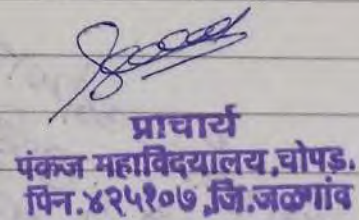 प्राचार्य
पंकज महाविदयालय,चोपड़.
पिन.४२५१०७,जि.जळगांव